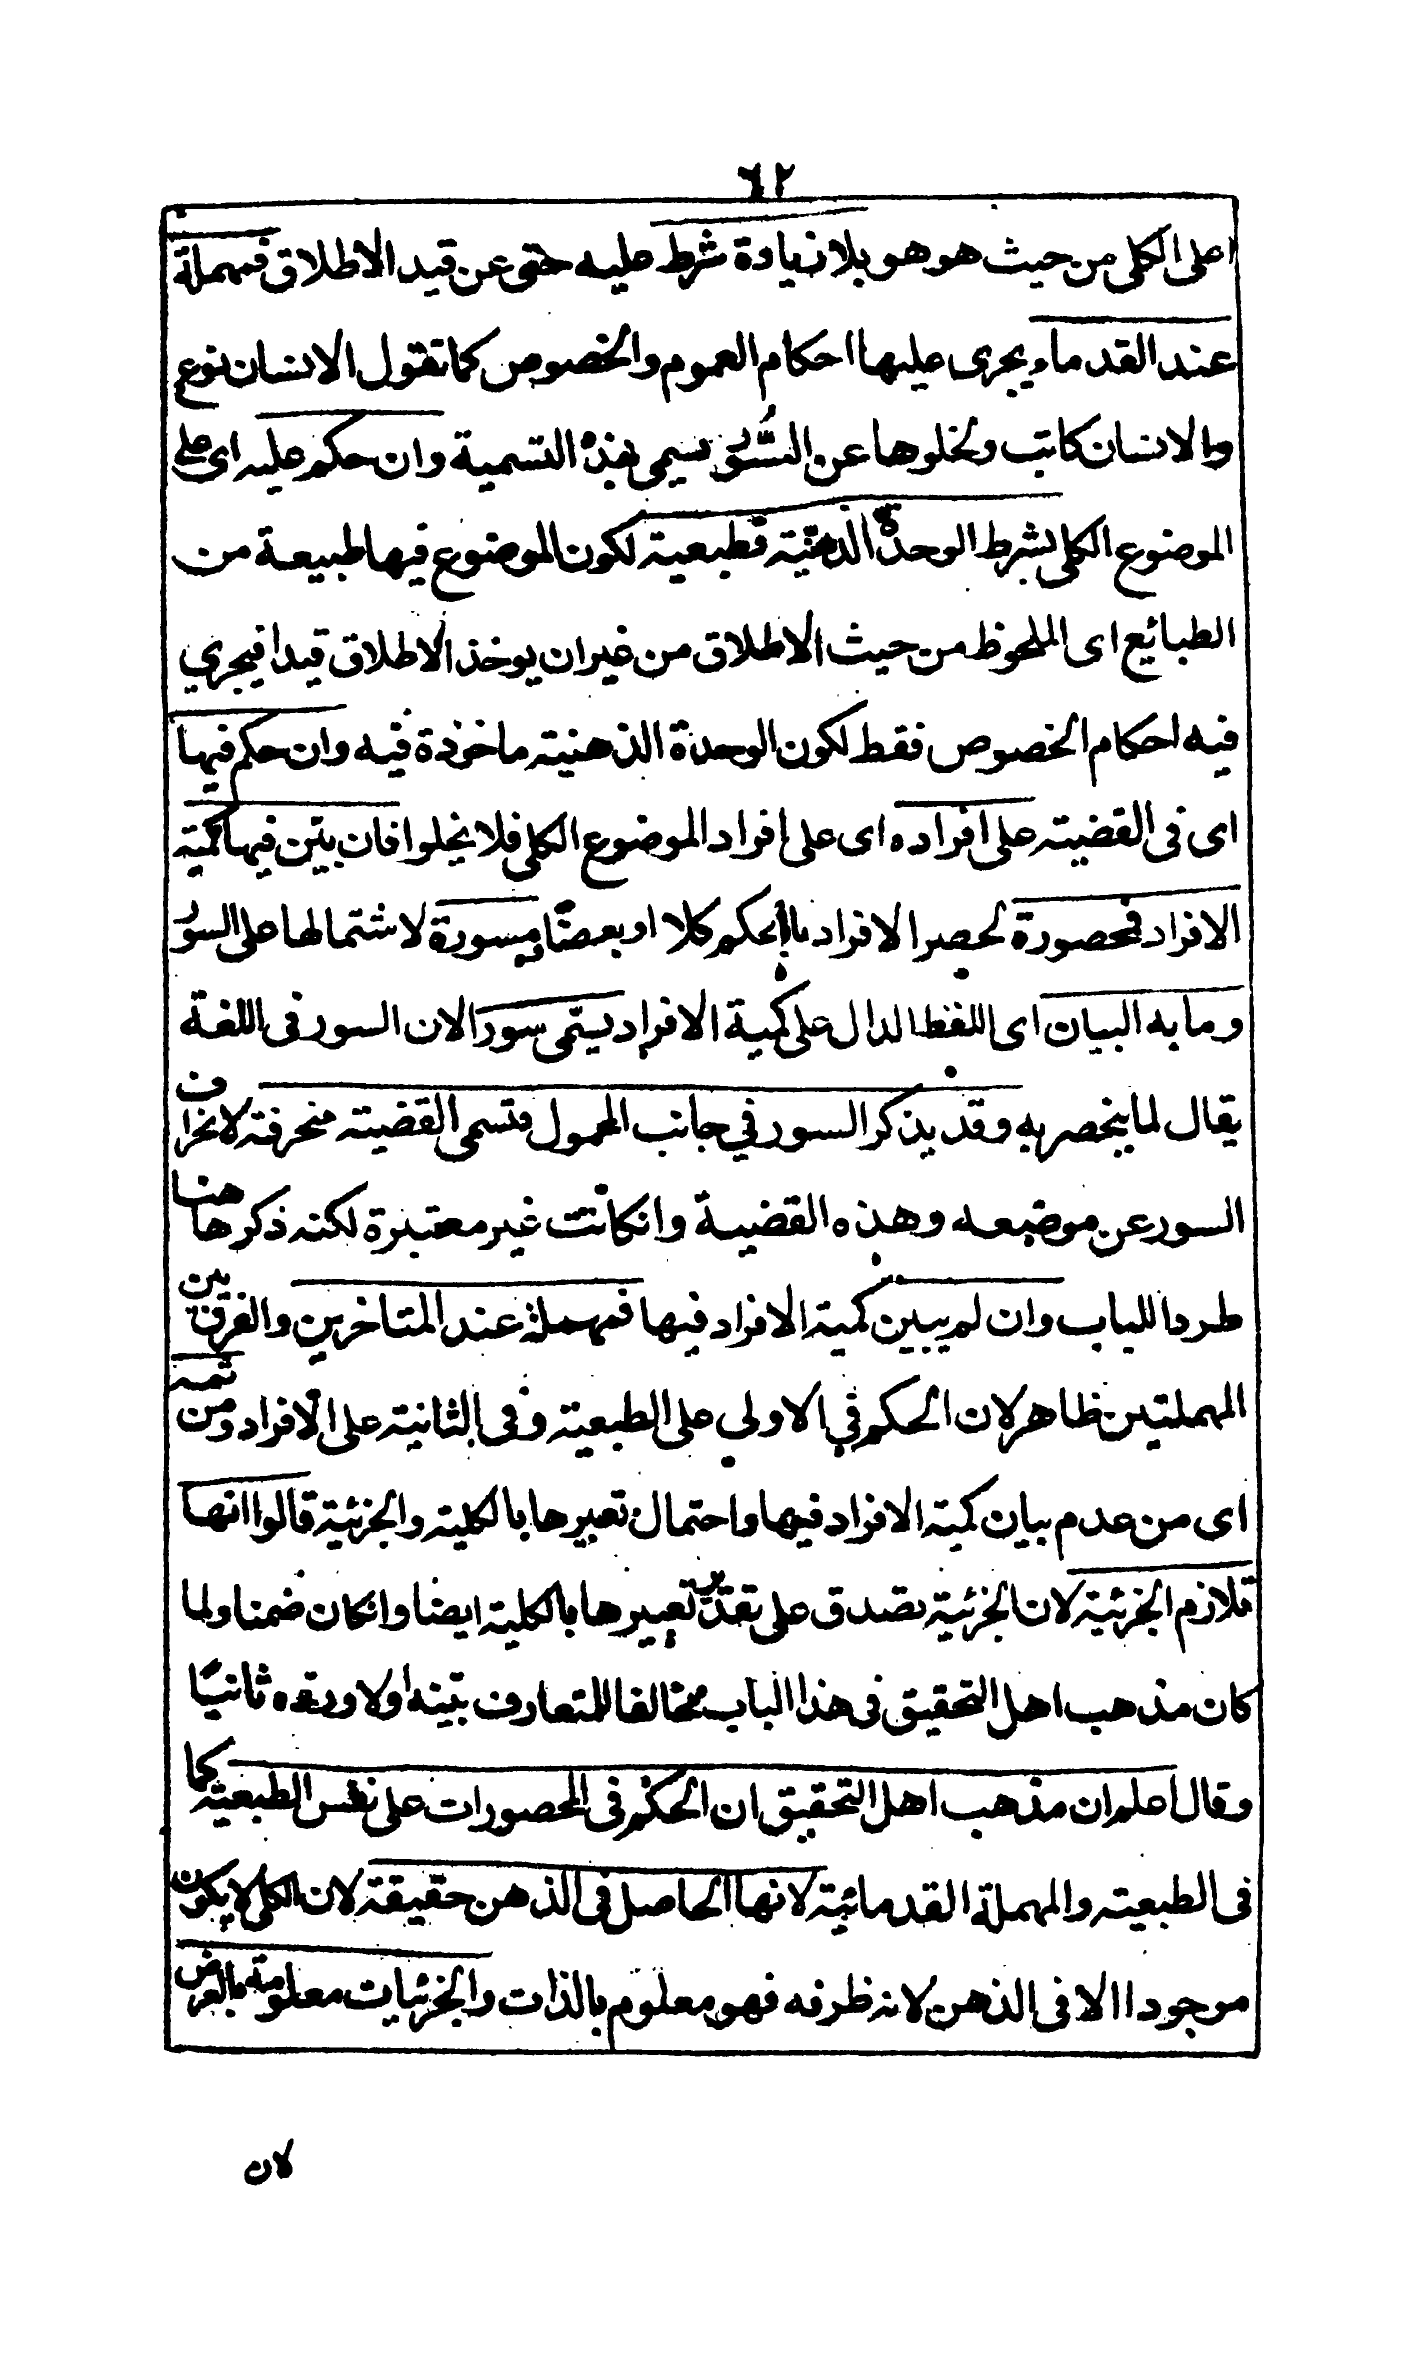 ٦٢
اعلى الكلى من حيث هو هو بلا زيادة شرط عليه حتى عن قيد الاطلاق فمهملة
عند القدماء ويجرى عليها احكام العموم والخصوص كما تقول الانسان نوع
والانسان كاتب ولخلوها عن السُّور يسمى بهذه التسمية وان حكم عليه اى على
الموضوع الكلى بشرط الوحدة الذهنية فطبعية لكون الموضوع فيها طبيعة من
الطبائع اى الملحوظ من حيث الاطلاق من غير ان يوخذ الاطلاق قيدا فيجري
فيه احكام الخصوص فقط لكون الوحدة الذهنية ماخوذة فيه وان حكم فيها
اى فى القضية على افراده اى على افراد الموضوع الكلى فلا يخلوا فان بين فيها كمية
الافراد فمحصورة لحصر الافراد بالحكم كلا او بعضًا ومسورة لاشتمالها على السوُر
وما به البيان اى اللفظ الدال على كمية الافراد يسمّى سورا لان السور فى اللغة
يقال لما ينحصر به وقد يذكر السور في جانب المحمول فتسمى القضية منحرفة لانحراف
السور عن موضعه وهذه القضية وانكانت غير معتبرة لكنه ذكرها هنا
طردا للباب وان لم يبين كمية الافراد فيها فمهملة عند المتاخرين والفرق بين
المهملتين ظاهر لان الحكم في الاولي على الطبعية وفى الثانية على الافراد ومن ثمه
اى من عدم بيان كمية الافراد فيها واحتمال تعبيرها بالكلية والجزئية قالوا انها
تلازم الجزئية لان الجزئية تصدق على تقدير تعبيرها بالكلية ايضا وانكان ضمنا ولما
كان مذهب اهل التحقيق فى هذا الباب مخالفا للمتعارف بيّنه اولا ورده ثانيًا
وقال اعلم ان مذهب اهل التحقيق ان الحكم فى المحصورات على نفس الطبعية كما
فى الطبعية والمهملة القدمائية لانها الحاصل فى الذهن حقيقة لان الكلى لا يكون
موجودا الا فى الذهن لانه ظرفه فهو معلوم بالذات والجزئيات معلومة بالعرض
لان